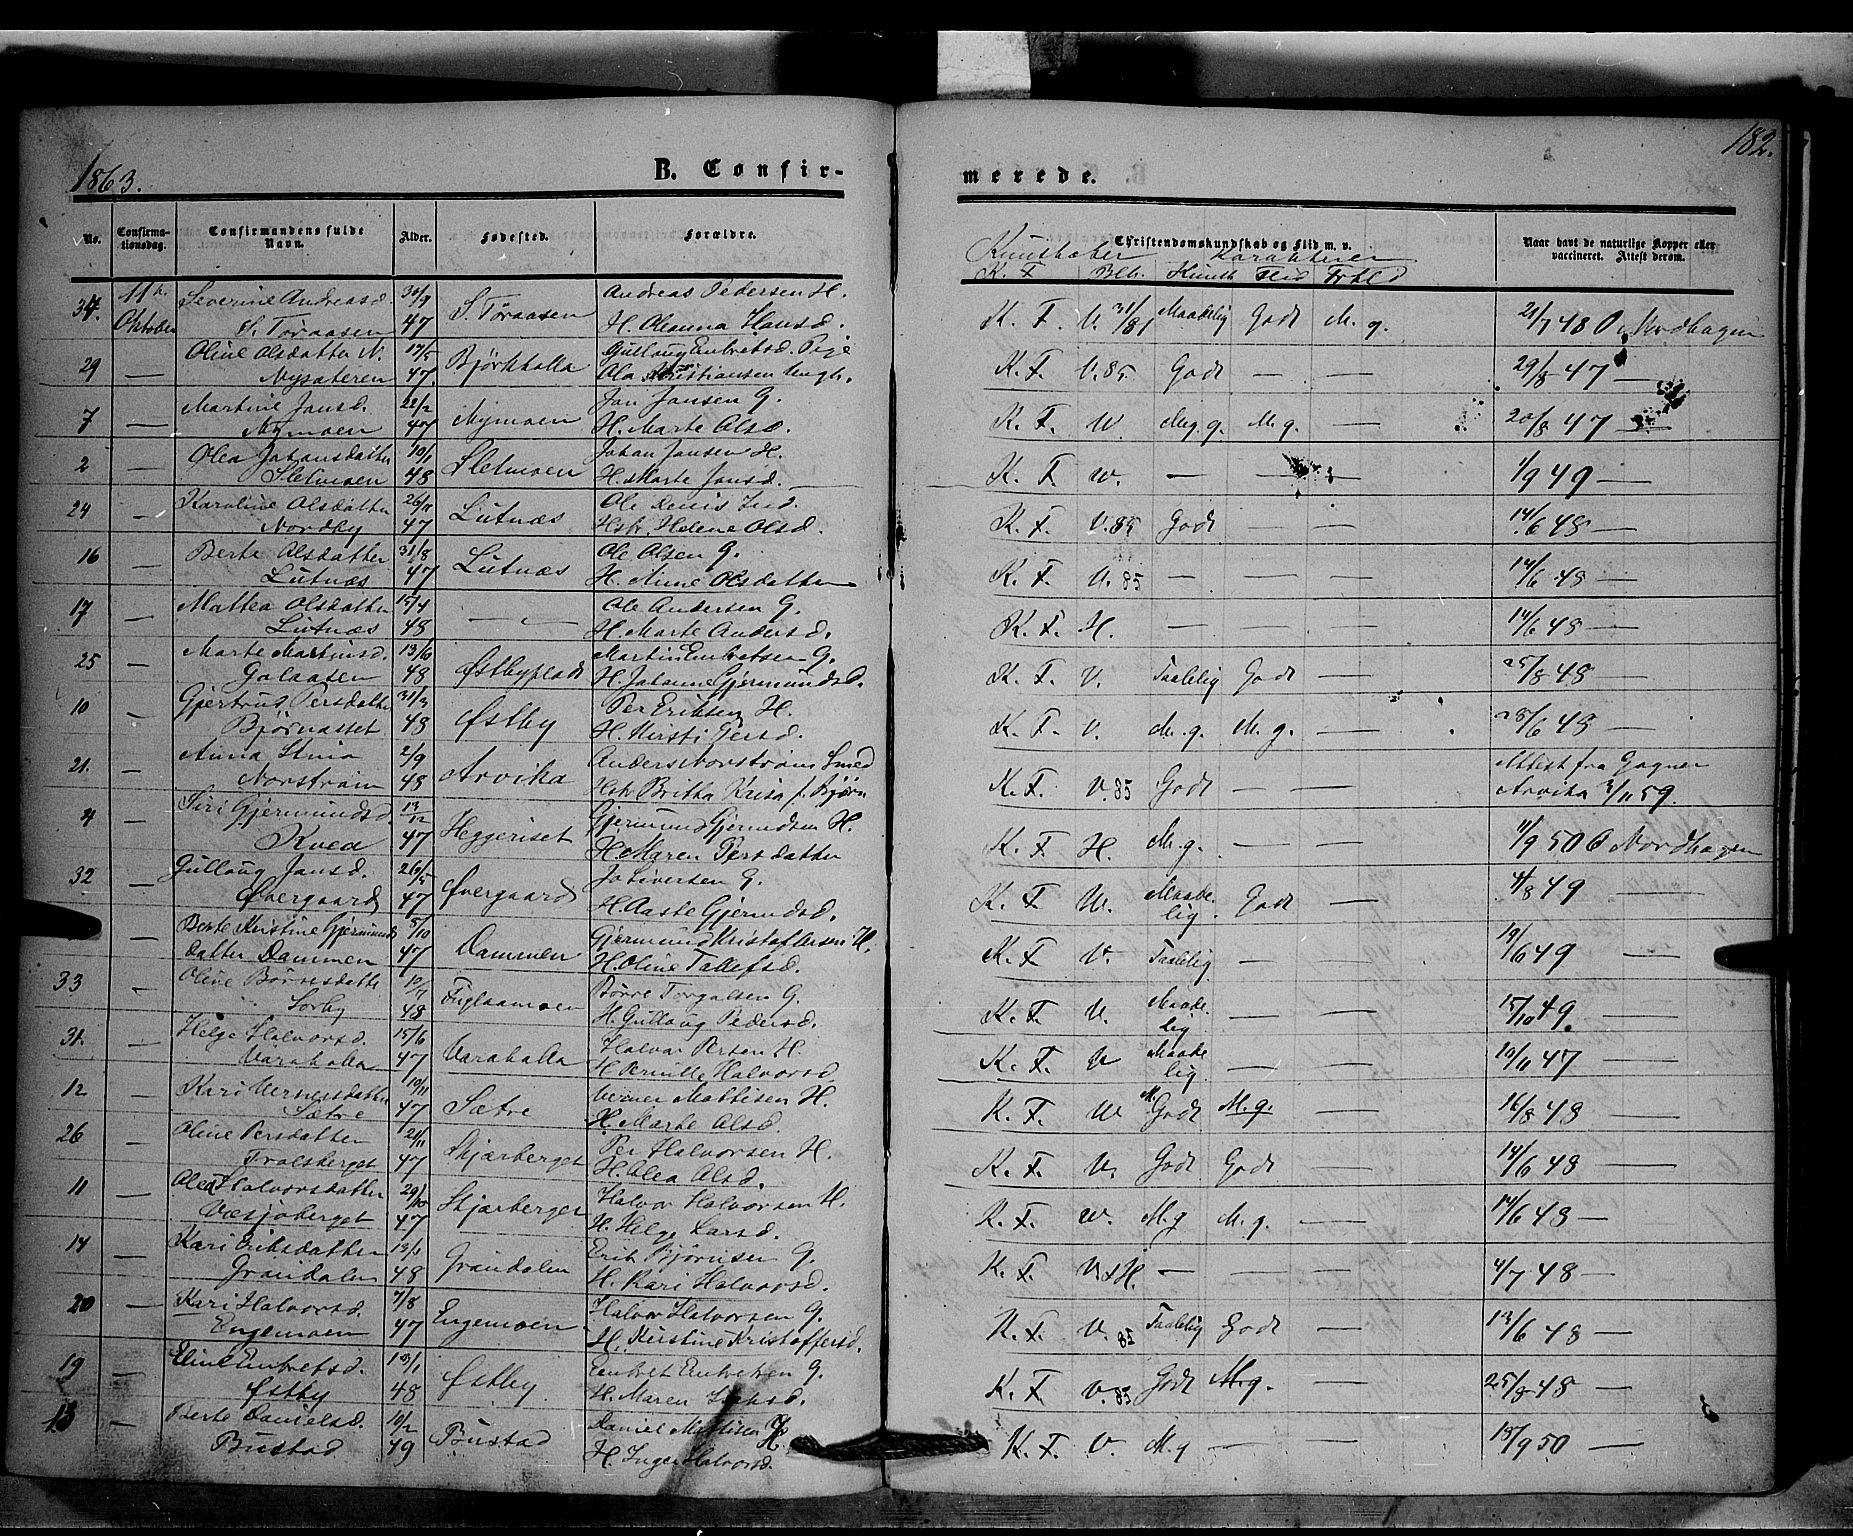 1863.
B. Confir-
merede.
182.
No.
Confirma-
tionsdag.
Confirmandens fulde
Navn.
Alder.
Fødested.
Forældre.
Christendomskundskab og Flid m. v.
Naar havt de naturlige Kopper eller
vaccineret. Attest derom.
K. F. Kundsk Flid Forhld
34. 11te Severine Andreasd. 30/9 S. Töraasen Andreas Pedersen H. K. F. V. 31/81 Maadelig Godt M. g. 21/7 48 O. Nordhagen
Oktober S. Toraasen 47 H. Oleanna Hansd.
29 — Oline Olsdatter N. 17/5 Björkhalla Gulloug Embretsd. Pige K. F. V. 85. Godt — — 29/8 47 —
Nysæteren 47. Ola Kristiansen Ungk.
7 — Martine Jansd. 22/2 Nymoen Jan Jansen G. K. F. V. Meg. g. M. g. — 20/8 47 —
Nymoen 47 H. Marte Olsd.
2 — Olea Johansdatter 10/1 Sletmoen Johan Jansen H. K. F. V. — — 1/9 49 —
Sletmoen 48 H. Marte Jansd.
24 — Karoline Olsdatter 26/11 Lutnæs Ole Ind. K. F. V. 85 Godt — — 14/6 48 —
Nordby 47 Hstr. Helene Olsd.
16 — Berte Olsdatter 31/8 Lutnæs Ole Olsen G. K. F. V. 85 — — — 14/6 48 —
Lutnæs 47 H. Anne Olsdatter
17 — Mattea Olsdatter 15/4 — Ole Andersen G. K. F. H. — — — 14/6 48 —
Lutnæs 48 H. Marte Andersd.
25 — Marte Martinsd. 13/6 Østbyplads Martin Embretsen G. K. F. V. Taalelig Godt — 25/8 48 —
Galaasen 48 H. Johanne Gjermundsd.
10 — Gjertrud Persdatter 31/3 Østby Per Eriksen H. K. F. V. M. g. M. g. — 28/6 48 —
Björnasset 48 H. Kirsti Persd.
21. — Anna Stina 2/9 Arvika Anders Norström Smed K. F. V. 85 Godt — — Attest fra Gagner
Norström 48 Hstr Britha Kaisa f. Björn Arvika 2/11 59.
4 — Siri Gjermundsd. 13/12 Heggeriset Gjermund Gjermdsen H. K. F. H. M. g. — — 11/9 50 O Nordhagen
Kvea 47 H. Maren Persdatter
32 — Gulloug Jansd. 26/5 Øvergaard Jo Iversen G. K. F. V. Maade- Godt — 4/8 49 —
Øvergaard 47 H. Aaste Gjermdsd. lig.
— Berte Kristine Gjermunds 5/10 Dammen Gjermund Kristoffersen H. K. F. V. Taalelig — — 19/6 49 —
datter Dammen 47 H. Oline Tollefsd.
33 — Oline Börresdatter Fuglaamoen Börre Torgalsen G. K. F. V. Maade- — — 15/10 49.
Sorby 48 H. Gulloug Pedersd. lig
31. — Helge Halvorsd. 15/6 Varahalla Halvor Persen H. K. F. V Maade- — — 19/11 47 —
Varahalla 47 H. Pernille Halvorsd lig.
12 — Kari Vernersdatter 10/11 Sætre Verner Mattisen H. K. F. V M. Godt M. g. — 16/8 48 —
Sætre 47 H. Marte Olsd.
26 — Oline Persdatter 21/11 Skjærberget Per Halvorsen H. K. F. V. Godt Godt — 14/6 48 —
Trolsberget 47 H. Olea Olsd.
11 — Olea Halvorsdatter 29/10 Skjærberget Halvor Halvorsen H. K. F. V. M. g M. g. — 14/6 48 —
Væsjöberget 47 H. Helge Larsd.
14 — Kari Eriksdatter 13/1 Gröndalen Erik Björnsen G. K. F. V. H. — — — 4/7 48 —
Gröndalen 48 H. Kari Halvorsd.
20 — Kari Halvorsd. 7/8 Engemoen Halvor Halvorsen G. K. F. V. 85 Taalelig Godt — 13/6 48 —
Engemoen 47 H. Kristine Kristoffersd.
19 — Eline Embretsd. 13/1 Østby Embret Embretsen G. K. F. V. 85 Godt M. g. — 25/8 48 —
Østby 48 H. Maren
13 — Berte Danielsd. 10/2 Bustad Daniel Mattisen H K. F. V. M. g — — 18/9 50 —
Bustad 49 H. Inger Halvorsd.